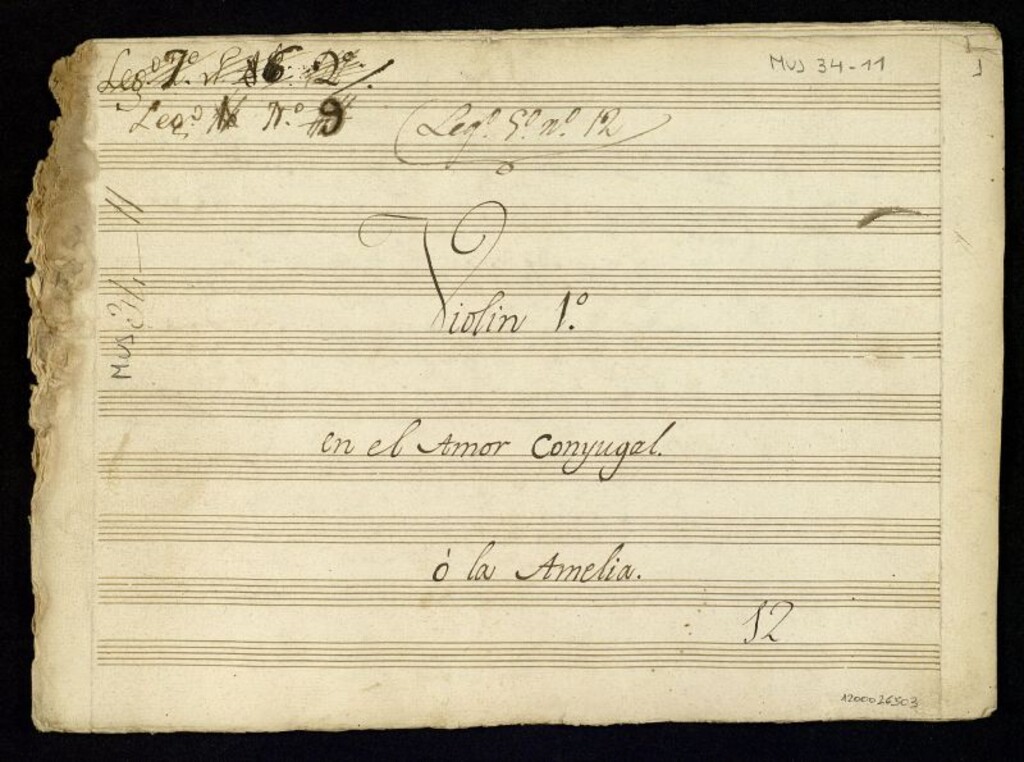 Leg.º 7.º 16. 2º.
MUS 34-11
Leg.º N.º 9
Leg.º 5.º n.º 12
MUS 34-11
Violin 1.º
en el Amor Conyugal.
ó la Amelia.
12
1200026503